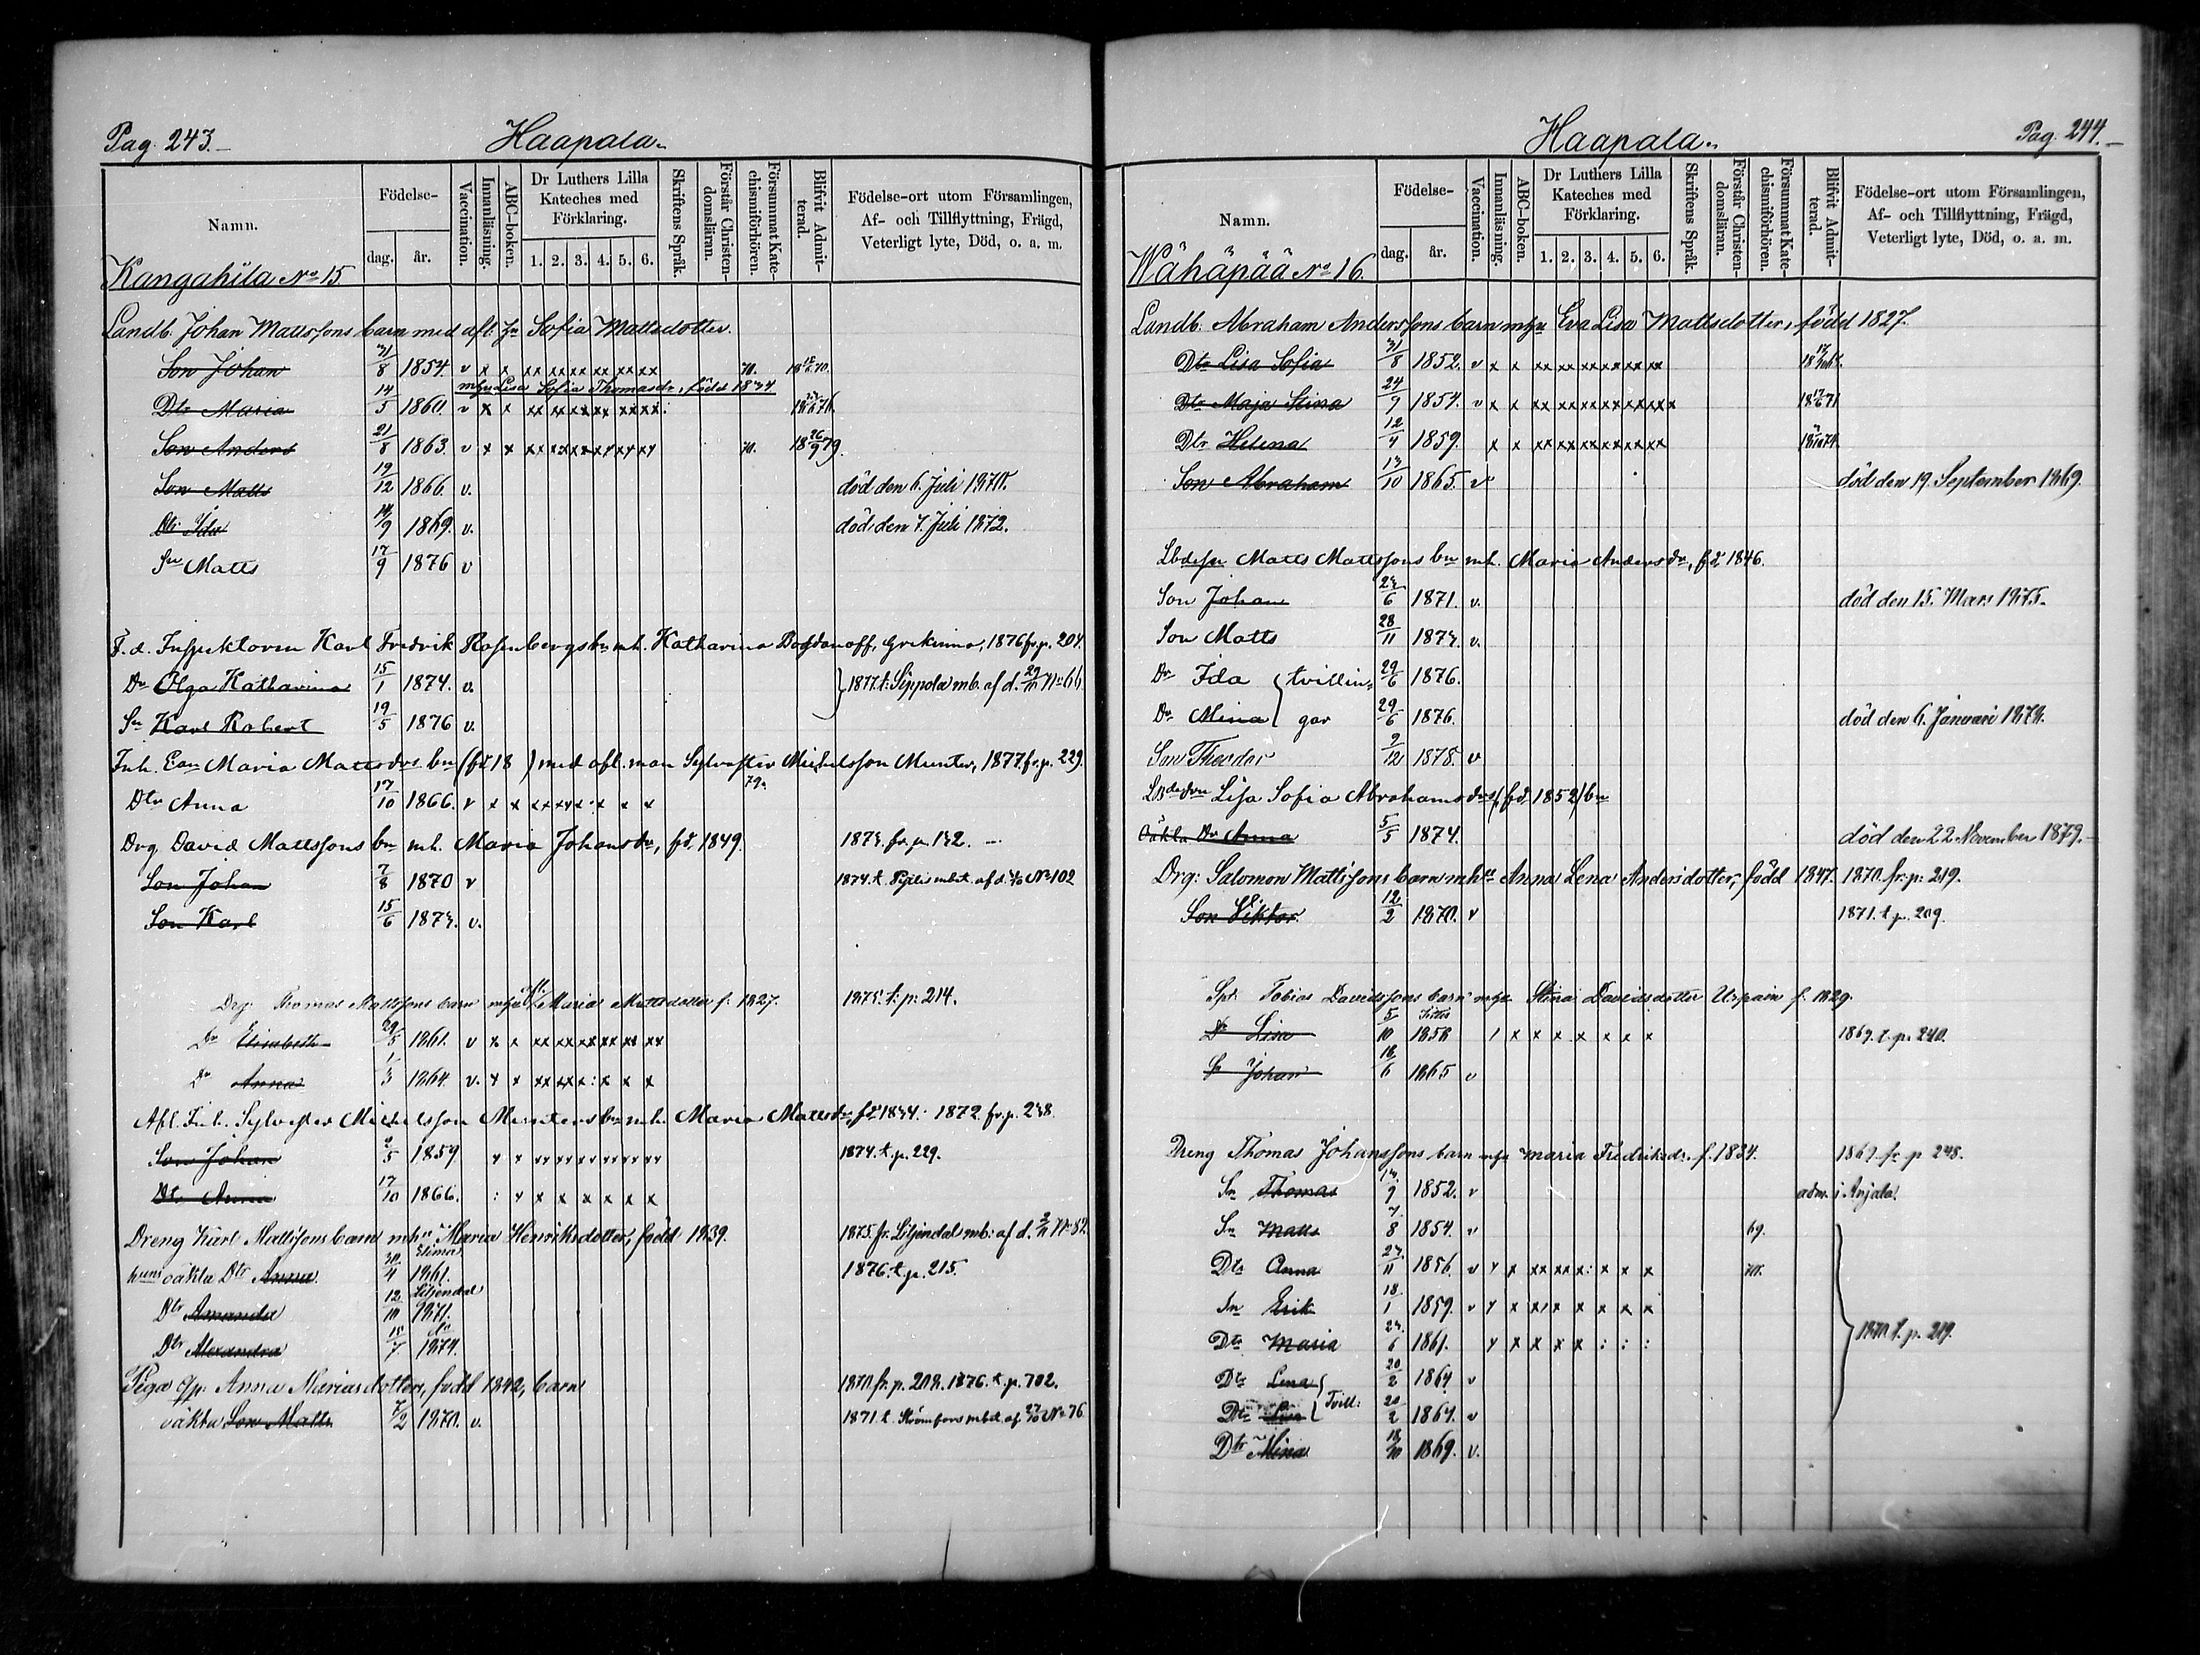 Pag. 243.
Haapala.
Namn.
Födelse-
dag.
år.
Vaccination.
Innanläsning.
ABC-boken.
Dr Luthers Lilla Kateches med Förklaring.
1. 2. 3. 4. 5. 6.
Skriftens Språk.
Förstår Christendomsläran.
Försummat Katechismiförhören.
Blifvit Admitterad.
Födelse-ort utom Församlingen,
Af- och Tillflyttning, Frägd,
Veterligt lyte, Död, o. a. m.
Kangahila No 15
Landb. Johan Mattssons barn med afl. hu Sofia Mattsdotter.
Son Johan 31/8 1854. v x x xx xx xx xx xx xx 70.
mhu Lisa Sofia Thomasdr, född 1834
Dtr Maria 14/5 1860 v x x xx xx xx xx xx xx
Son Anders 21/8 1863. v x x xx xx xx xx xx xx 70. 18 26/9 79.
Son Matts 19/12 1866. v. död den 6. Juli 1870.
Dtr Ida 14/9 1869. v. död den 7. Juli 1872.
Sn Matts 17/9 1876 v
F. d. Inspektoren Karl Fredrik Rosenbergs bn mh. Katharina Bogdanoff, Grekinna, 1876 fr. p. 204.
Dr Olga Katharina 15/1 1874. v. 1877 t. Sippola mb. af d. 29/11 No 66
Sn Karl Robert 19/5 1876 v.
Inh. Ean Maria Mattsdrs bn (fd 18 ) med afl. man Sylvester Michelsson Munter, 1877. fr. p. 229.
Dtr Anna 17/10 1866. v x x xx xx x x x 79.
Drg. David Mattssons bn mh. Maria Johansdr, fd. 1849. 1873. fr. p. 132.
Son Johan 7/8 1870 v 1874. t. No 102
Son Karl 15/6 1873. v.
Drg. Thomas Mattssons barn mhu afl. Maria Mattsdotter f. 1827. 1875. t. p. 214.
Dr Elisabeth 29/5 1861. v x x xx xx xx xx xx xx
Dr Anna 1/3 1864. v. x x xx xx x : x x x
Afl. Inh. Sylvester Michelsson Munters bn mh. Maria Mattsdr, fd 1834. 1872. fr. p. 238
Son Johan 2/5 1859 x x xx xx xx xx xx xx 1874. t. p. 229.
Dtr Anna 17/10 1866. : x x x x x x x
Dreng Karl Mattssons barn mhu Maria Henriksdotter, född 1839. 1875. fr. Liljendal mb: af d. 2/11 No 52.
huns oäkta Dtr Anna 30/4 1861. Elimä 1876. t. p. 215.
Dtr Amanda 12/10 1871. Liljendal
Dtr Alexandra 15/7 1874. do
Piga Anna Mariasdotter, född 1842, barn 1870 fr. p. 208. 1876. t. p. 702.
oäkta Son Matts 7/2 1870. v. 1871 t. Strömfors mbd. af 27/10 No 76
Haapala.
Pag. 244.
Namn.
Födelse-
dag.
år.
Vaccination.
Innanläsning.
ABC-boken.
Dr Luthers Lilla Kateches med Förklaring.
1. 2. 3. 4. 5. 6.
Skriftens Språk.
Förstår Christendomsläran.
Försummat Katechismiförhören.
Blifvit Admitterad.
Födelse-ort utom Församlingen,
Af- och Tillflyttning, Frägd,
Veterligt lyte, Död, o. a. m.
Wähäpää No 16.
Landb. Abraham Anderssons barn mhu Eva Lisa Mattsdotter, född 1827.
Dtr Lisa Sofia 31/8 1852. v x x xx xx xx xx xx xx
Dtr Maja Stina 24/9 1854. v x x xx xx xx xx xx xx x
Dtr Helena 12/4 1859. x x xx xx xx xx xx xx
Son Abraham 13/10 1865. v död den 19. September 1869.
Lbdesn Matts Mattssons bn mh. Maria Andersdr, fd 1846.
Son Johan 23/6 1871. v. död den 15. Mars 1875.
Son Matts 28/11 1873. v.
Dr Ida tvillin- 29/6 1876.
Dr Mina gar 29/6 1876. död den 6. Januari 1878.
Son Theodor 9/12 1878. v
Lbdedrn Lisa Sofia Abrahamsdrs (fd. 1852) bn
Oäkta Dr Anna 5/5 1874. död den 22 November 1879.
Drg: Salomon Mattssons barn mhu Anna Lena Andersdotter, född 1847. 1870. fr: p: 219.
Son Viktor 12/2 1870. v 1871. t. p. 209.
Spt: Tobias Davidssons barn mhu Stina Davidsdotter Urpain f. 1829.
Dr Lisa 5/10 1858 / x x x x x x x 1869. t. p. 240.
Sn Johan 18/6 1865 v
Dreng Thomas Johanssons barn mhu Maria Fredriksdr. f. 1834. 1869. fr. p 248.
Sn Thomas 13/9 1852. v adm. i Anjala.
Sn Matts 7/8 1854. v 69.
Dtr Anna 23/11 1856. v x x xx xx x : x x x 70.
Sn Erik 18/1 1859. v x x x x x x x x
Dtr Maria 23/6 1861. x x x x x : : : 1870. t. p. 219.
Dtr Lena 20/2 1864 v
Tvill:
Dtr Lisa 20/2 1864. v
Dtr Mina 18/10 1869. v.